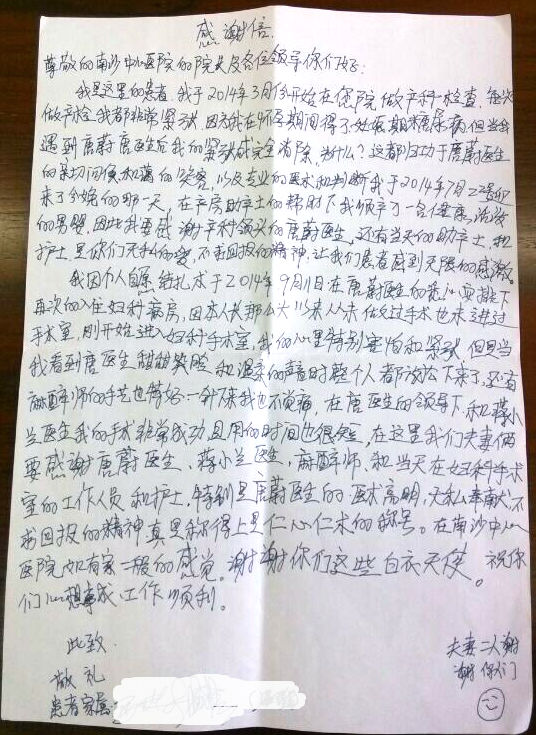 感谢信
尊敬的南沙中心医院的院长及各位领导你们好:
我是这里的患者,我于2014年3月份开始在您院做产科检查,每次
做产检我都非常紧张,因为我在怀孕期间得了妊娠期糖尿病,但当我
遇到唐蔚唐医生后我的紧张感完全消除,为什么?这都归功于唐蔚医生
的亲切问候和蔼的笑容,以及专业的医术和判断我于2014年7月22号迎
来了分娩的那一天,在产房助产士的帮助下我顺产了一名健康,活泼
的男婴,因此我要感谢产科领头的唐蔚医生,还有当天的助产士,和
护士,是你们无私的爱,不求回报的精神,让我们患者感到无限的感激。
我因个人自愿结扎术于2014年9月1日在唐蔚医生的悉心安排下
再次的入住妇科病房,因本人长那么大以来从未做过手术也未进过
手术室,刚开始进入妇科手术室,我的心里特别害怕和紧张,但是当
我看到唐医生甜甜笑脸和温柔的声音时整个人都放松下来了,还有
麻醉师的手艺也特好一针下来我也不觉痛,在唐医生的领导下,和蒋小
兰医生我的手术非常成功且用的时间也很短,在这里我们夫妻俩
要感谢唐蔚医生,蒋小兰医生,麻醉师,和当天在妇科手术
室的工作人员和护士,特别是唐蔚医生的医术高明,无私奉献不
求回报的精神真是称得上是仁心仁术的称号。在南沙中心
医院如有家一般的感觉。谢谢你们这些白衣天使。祝你
们心想事成工作顺利。
此致
敬礼
夫妻二人谢
谢你们
患者家属: